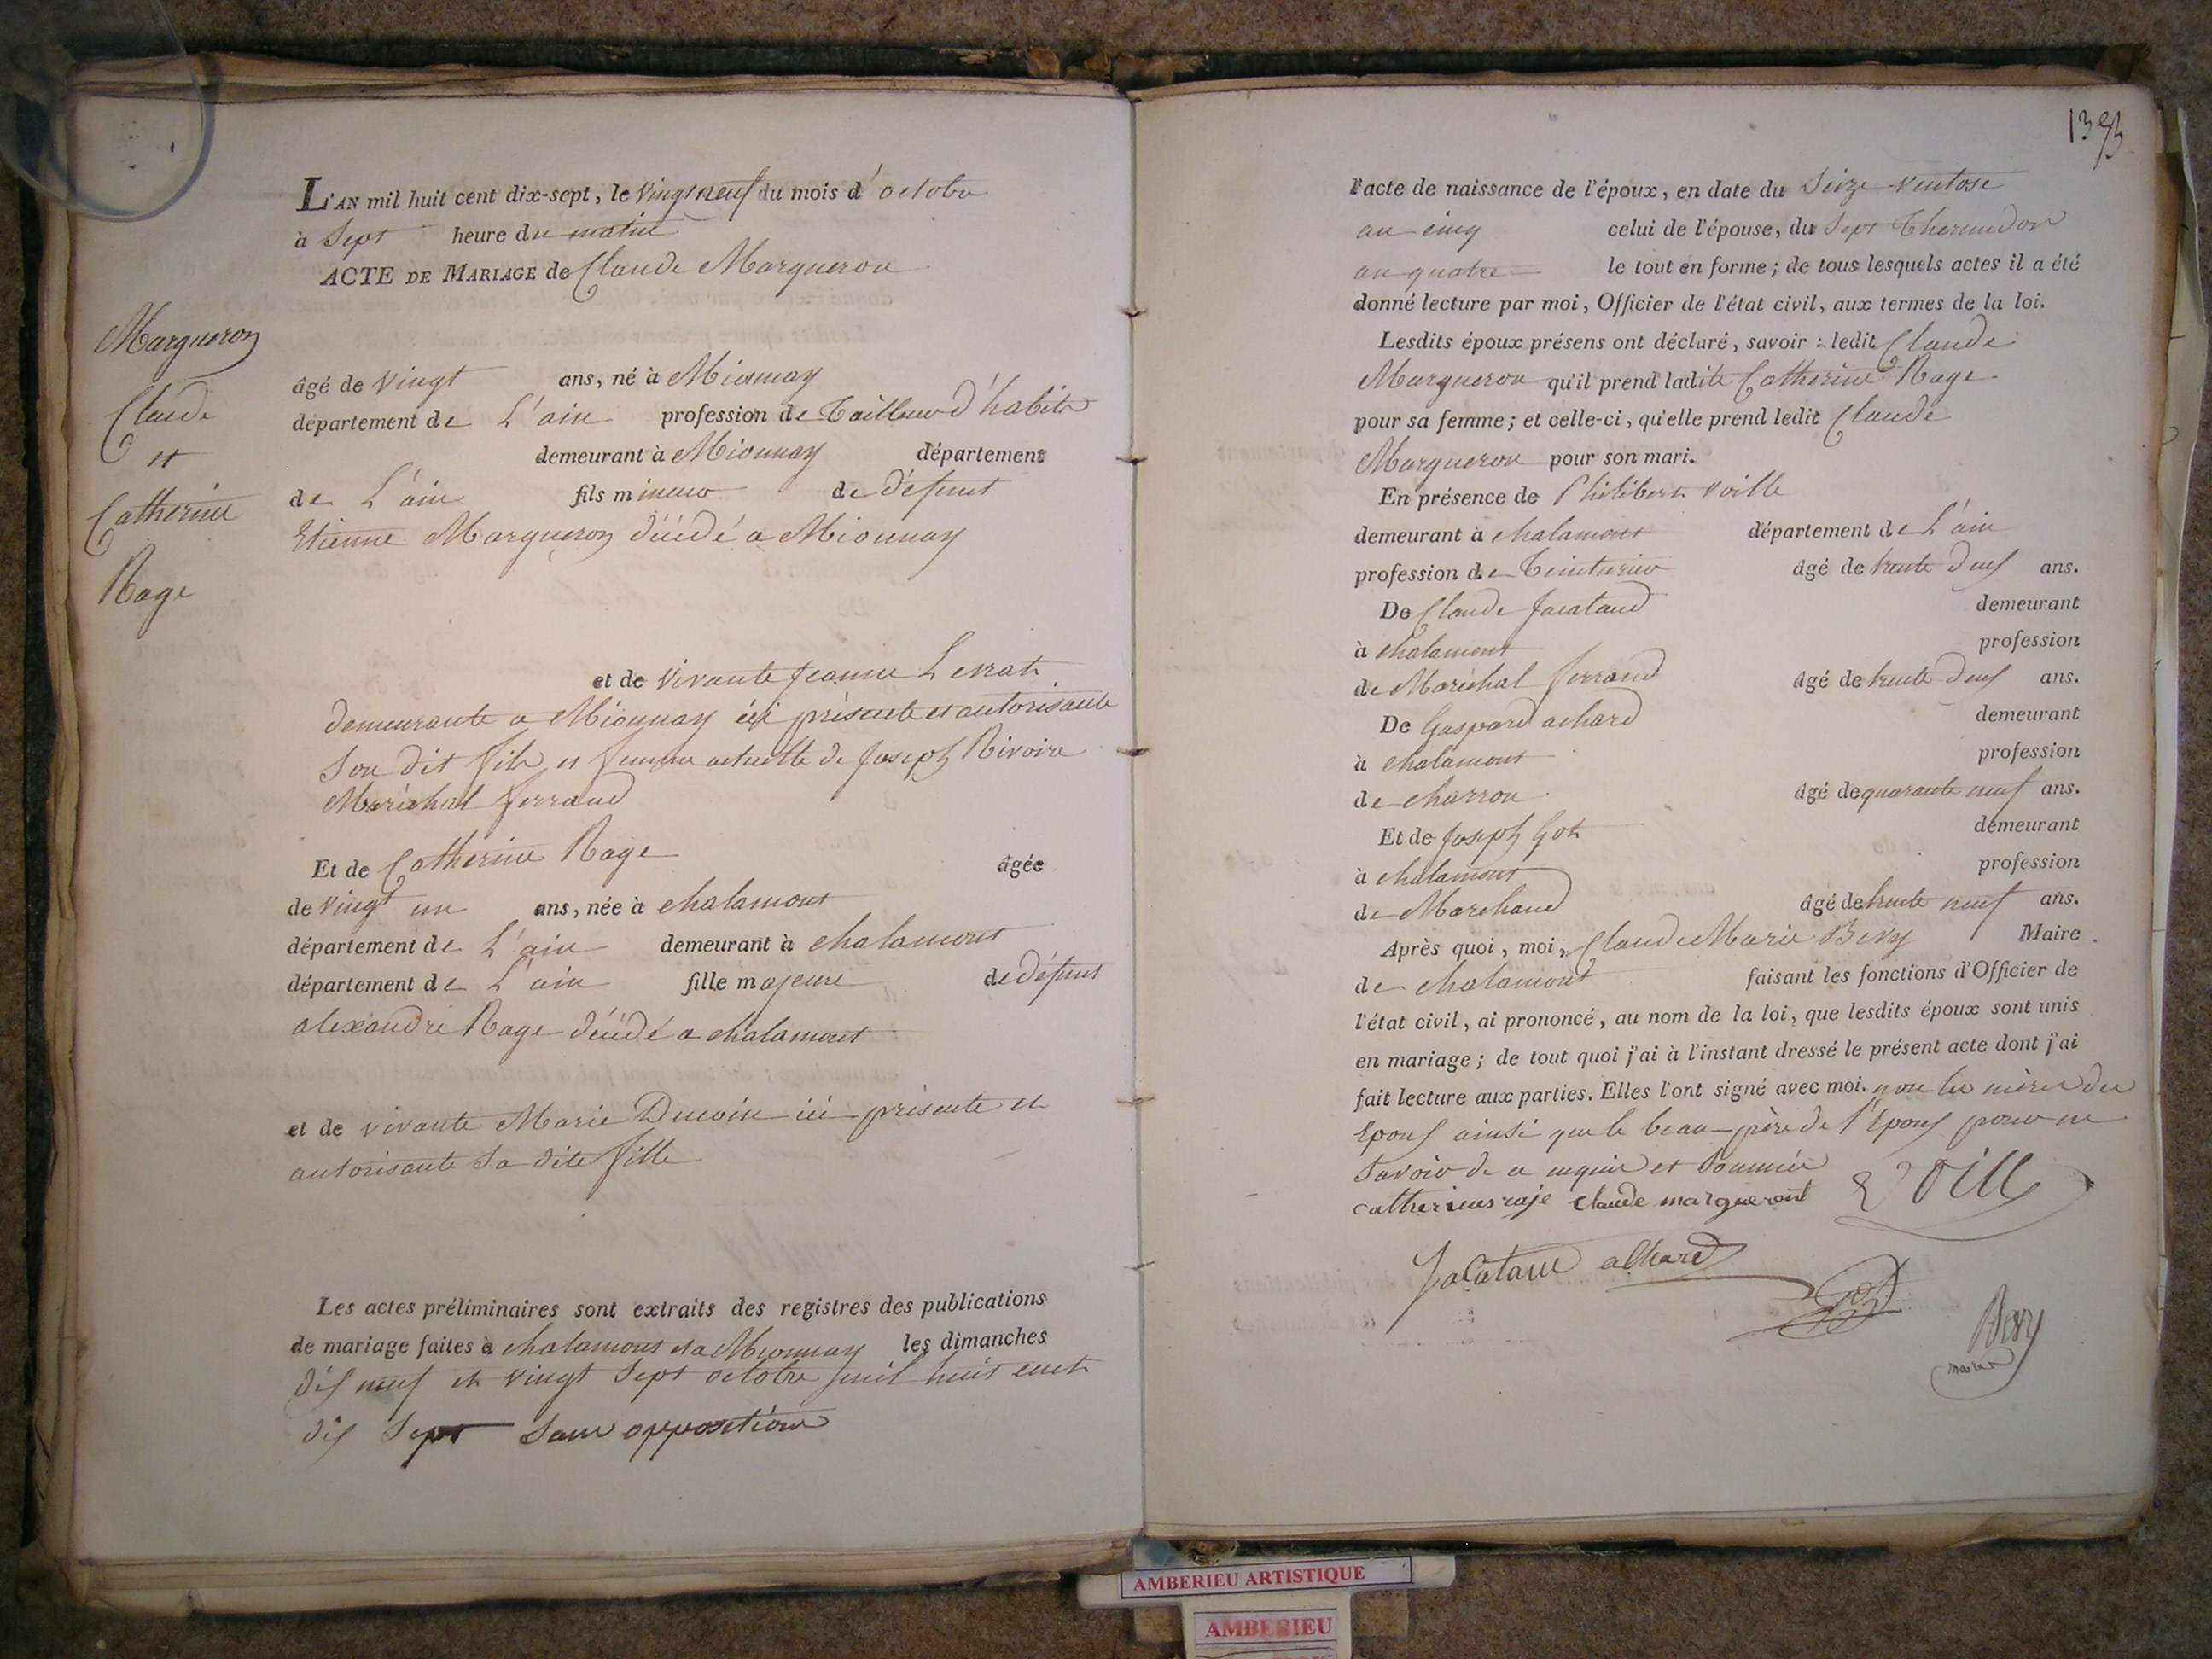 L'AN mil huit cent dix-sept, le vingt neuf du mois d'octobre
à Sept heure du matin
ACTE DE MARIAGE de Claude Margueron
Margueron
Claude
et
Catherine
Rage
âgé de vingt ans, né à Mionnay
département de L'ain profession de Tailleur d'habits
demeurant à Mionnay département
de L'ain fils mineur de défunt
Etienne Margueron décédé a Mionnay
et de vivante Jeanne Levrat
demeurante a Mionnay ici présente et autorisante
Son dit fils et femme actuelle de Joseph Rivoire
Maréchal ferrand
Et de Catherine Rage âgée
de vingt un ans, née à chalamont
département de L'ain demeurant à chalamont
département de L'ain fille majeure de défunt
alexandre Rage décédé a chalamont
et de vivante Marie ici présente et
autorisante Sa dite fille
Les actes préliminaires sont extraits des registres des publications
de mariage faites à chalamont et a Mionnay les dimanches
dix neuf et vingt Sept octobre mil huit cent
dix Sept Sans opposition
1393
l'acte de naissance de l'époux, en date du Seize ventose
an cinq celui de l'épouse, du Sept Thermidor
an quatre le tout en forme; de tous lesquels actes il a été
donné lecture par moi, Officier de l'état civil, aux termes de la loi.
Lesdits époux présens ont déclaré, savoir: ledit Claude
Margueron qu'il prend ladite Catherine Rage
pour sa femme; et celle-ci, qu'elle prend ledit Claude
Margueron pour son mari.
En présence de Philibert Voille
demeurant à chalamont département de L'ain
profession de Teinturier âgé de trente deux ans.
De Claude Jacataud demeurant
à chalamont profession
de Maréchal ferrand âgé de trente deux ans.
De Gaspard achard demeurant
à chalamont profession
de charron âgé de quarante neuf ans.
Et de Joseph Got demeurant
à chalamont profession
de Marchand âgé de trente neuf ans.
Après quoi, moi, Claude Marie Bevy Maire
de chalamont faisant les fonctions d'Officier de
l'état civil, ai prononcé, au nom de la loi, que lesdits époux sont unis
en mariage; de tout quoi j'ai à l'instant dressé le présent acte dont j'ai
fait lecture aux parties. Elles l'ont signé avec moi. non les mères des
Epoux ainsi que le beau-père de l'Epoux pour ne
Savoir de ce enquis et Sommés
catherines raje claude margueront Voille
Jacataud achard
Got
Bevy
maire
AMBERIEU ARTISTIQUE
AMBERIEU